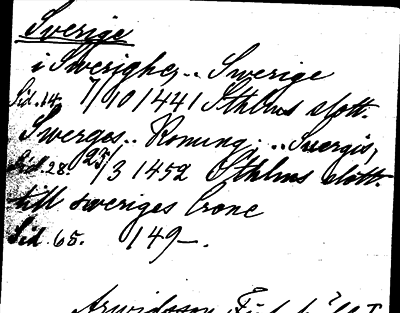 Sverige
i Swerighe,.. Swerige
Sid. 14. 7/10 1441 Sthlms slott.
Swerges.. Konung,...Suergis,
Sid. 28. 25/3 1452 Sthlms slott.
till sweriges crone
Sid. 65. 149—.
Arwidsson